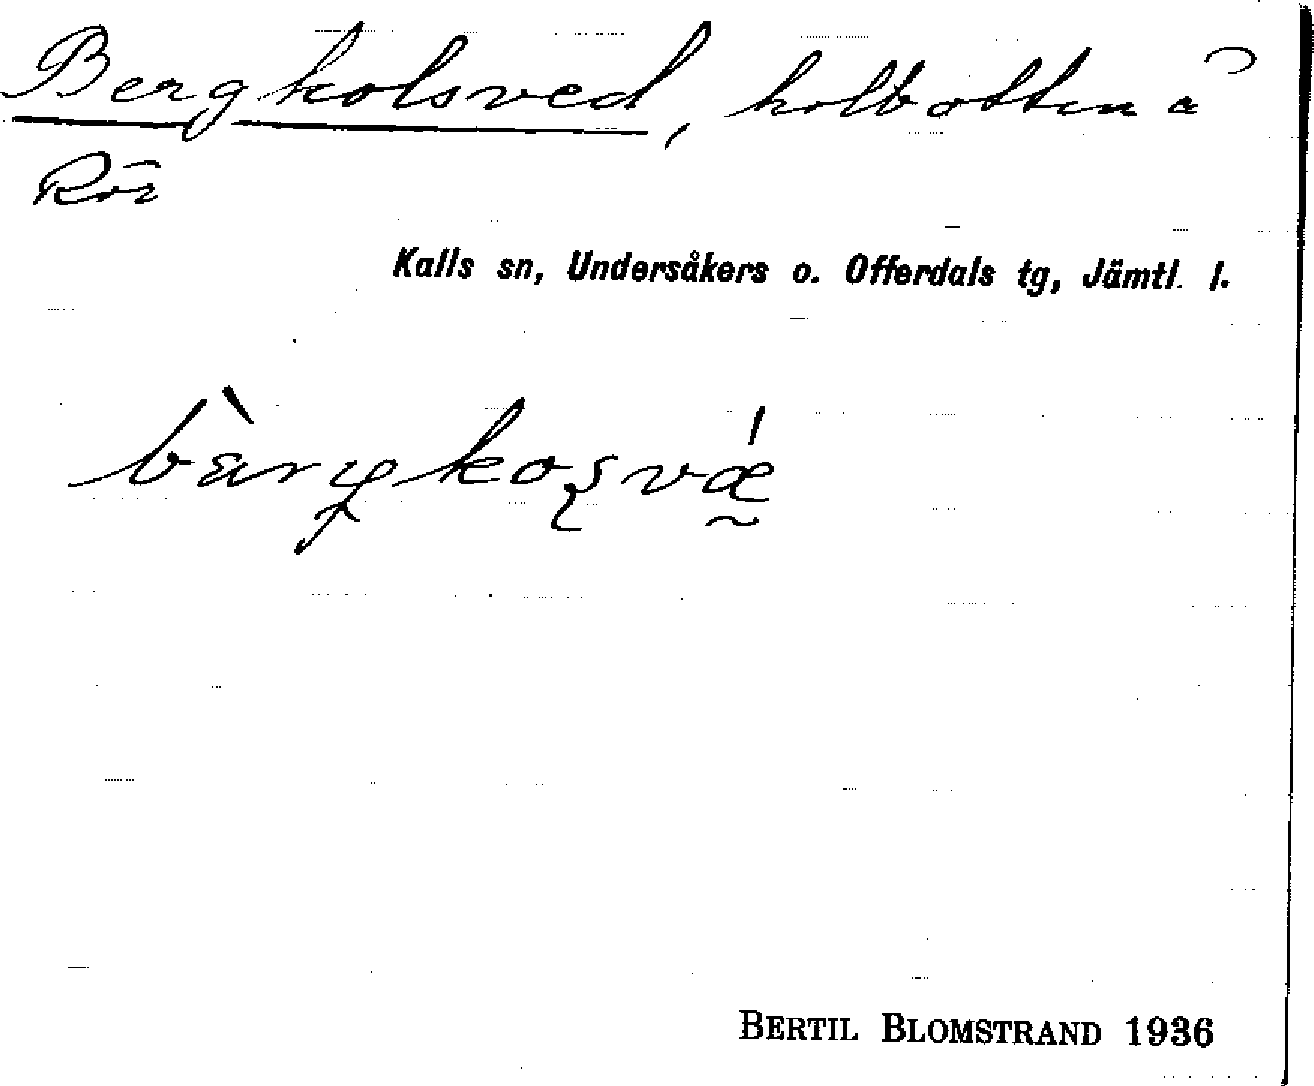 Bergkolsved, kolbotten å
Rör
Kalls sn, Undersåkers o. Offerdals tg, Jämtl. l.
BERTIL BLOMSTRAND 1936